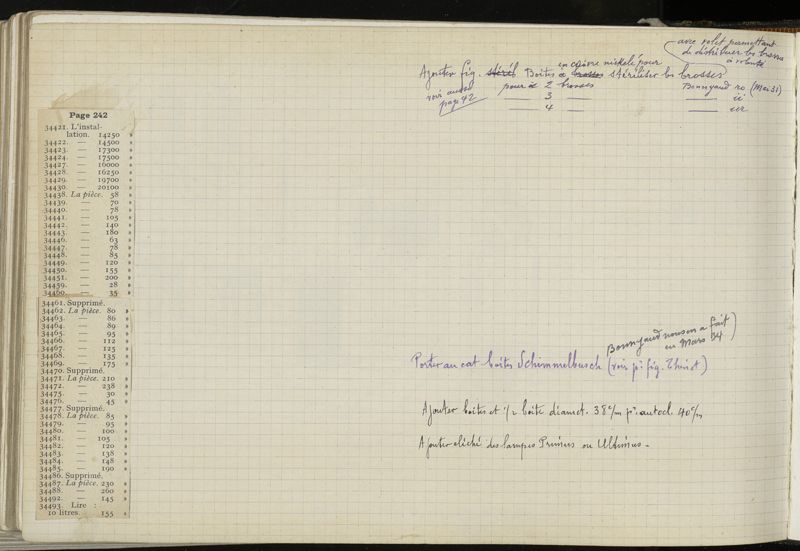 Page 242
34421. L'instal-
lation. 14250 »
34422. — 14500
34423. — 17300
34424. — 17500
34427. — 16000
34428. — 16250
34429. — 19700
34430. — 20100
34438. La pièce. 58 »
34439. — 70 »
34440. — 78 »
34441. — 105 »
34442. — 140 »
34443. — 180 »
34446. — 63 »
34447. — 78 »
34448. — 85 »
34449. — 120 »
34450. — 155 »
34451. — 200 »
34459. — 28 »
34460. — 35 »
34461. Supprimé.
34462. La pièce. 80 »
34463. — 86 »
34464. — 89 »
34465. — 95 »
34466. — 112 »
34467. — 125 »
34468. — 135 »
34469. — 175 »
34470. Supprimé.
34471. La pièce. 210 »
34472. — 238 »
34475. — 30 »
34476. — 45 »
34477. Supprimé.
34478. La pièce. 85 »
34479. — 95 »
34480. — 100 »
34481. — 105 »
34482. — 120 »
34483. — 138 »
34484. — 148 »
34485. — 190 »
34486. Supprimé.
34487. La pièce. 230 »
34488. — 260 »
34492. — 145 »
34493. Lire :
10 litres. 155 »
avec volet permettant
de distribuer les brosses
à volonté
en cuivre nickelé pour
Ajouter fig. stéril Boîtes à brosses stériliser les brosses
voir aussi
page 42
pour 2 brosses Bonnyaud ro (Mars 31)
— 3 — — ii
— 4 —
Bonnyaud nous en a fait
en Mars 34
Porter au cat boîtes Schimmelbusch (voir pr fig. Thiriot)
Ajouter boîtes et 1/2 boîte diamet. 38 c/m pr autocl. 40 c/m
Ajouter cliché des lampes Primus ou Ultimus -